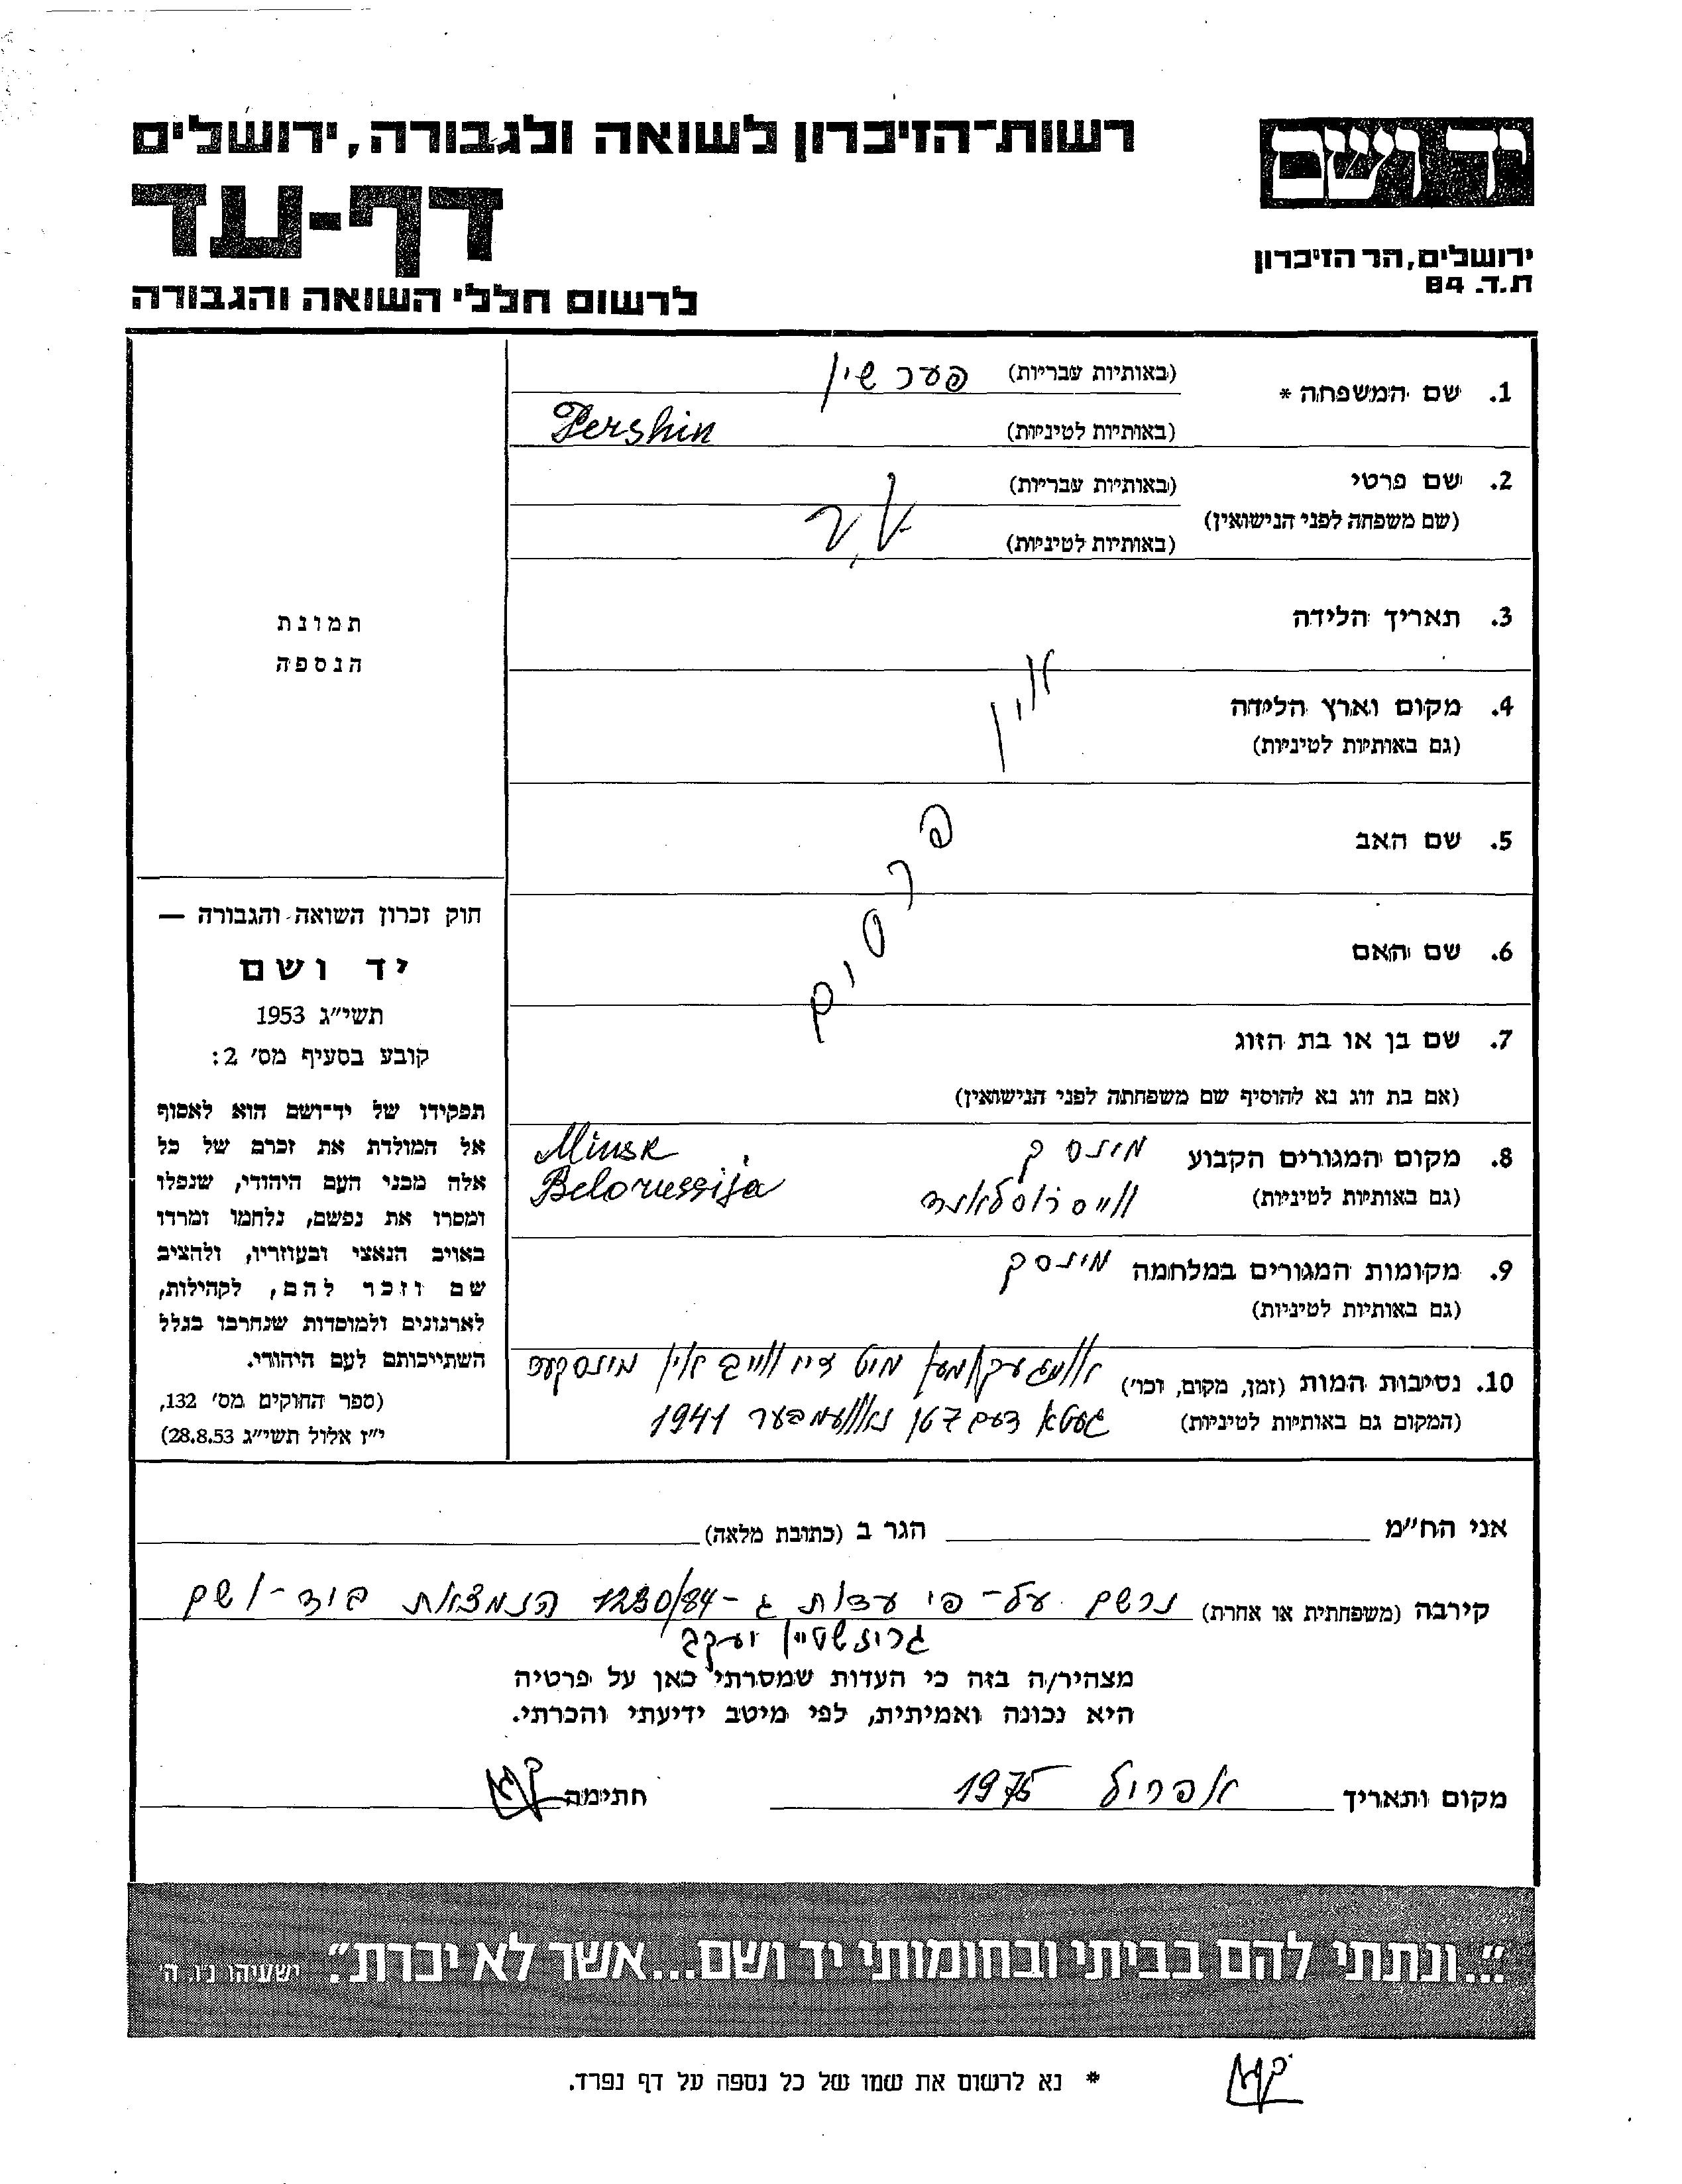 רשות־הזיכרון לשואה ולגבורה, ירושלים
יד ושם
דף-עד
ירושלים, הר הזיכרון
ת.ד. 84
לרשום חללי השואה והגבורה
1. שם המשפחה * (באותיות עבריות) פערשין
(באותיות לטיניות) Pershin
2. שם פרטי (באותיות עבריות)
(שם משפחה לפני הנישואין)
(באותיות לטיניות)
3. תאריך הלידה
תמונת
הנספה
אין
4. מקום וארץ הלידה
(גם באותיות לטיניות)
פרטים
5. שם האב
6. שם האם
7. שם בן או בת הזוג
(אם בת זוג נא להוסיף שם משפחתה לפני הנישואין)
8. מקום המגורים הקבוע מינסק Minsk
(גם באותיות לטיניות) ווייסרוסלאנד Belorussija
9. מקומות המגורים במלחמה מינסק
(גם באותיות לטיניות)
10. נסיבות המות (זמן, מקום, וכו') אומגעקומען מיט דיו ווייב אין מינסקער
(המקום גם באותיות לטיניות) געטא דעם 7טן נאוועמבער 1941
חוק זכרון השואה והגבורה —
יד ושם
תשי"ג 1953
קובע בסעיף מס' 2:
תפקידו של יד־ושם הוא לאסוף
אל המולדת את זכרם של כל
אלה מבני העם היהודי, שנפלו
ומסרו את נפשם, נלחמו ומרדו
באויב הנאצי ובעוזריו, ולהציב
שם וזכר להם, לקהילות,
לארגונים ולמוסדות שנחרבו בגלל
השתייכותם לעם היהודי.
(ספר החוקים מס' 132,
י"ז אלול תשי"ג 28.8.53)
אני הח"מ הגר ב (כתובת מלאה)
קירבה (משפחתית או אחרת) נרשם על-פי עדות ג-1230/84 הנמצאת ביד-ושם
גרינשטיין יעקב
מצהיר/ה בזה כי העדות שמסרתי כאן על פרטיה
היא נכונה ואמיתית, לפי מיטב ידיעתי והכרתי.
מקום ותאריך אפריל 1975 חתימה
"...ונתתי להם בביתי ובחומותי יד ושם...אשר לא יכרת". ישעיהו נ"ו, ה'
* נא לרשום את שמו של כל נספה על דף נפרד.